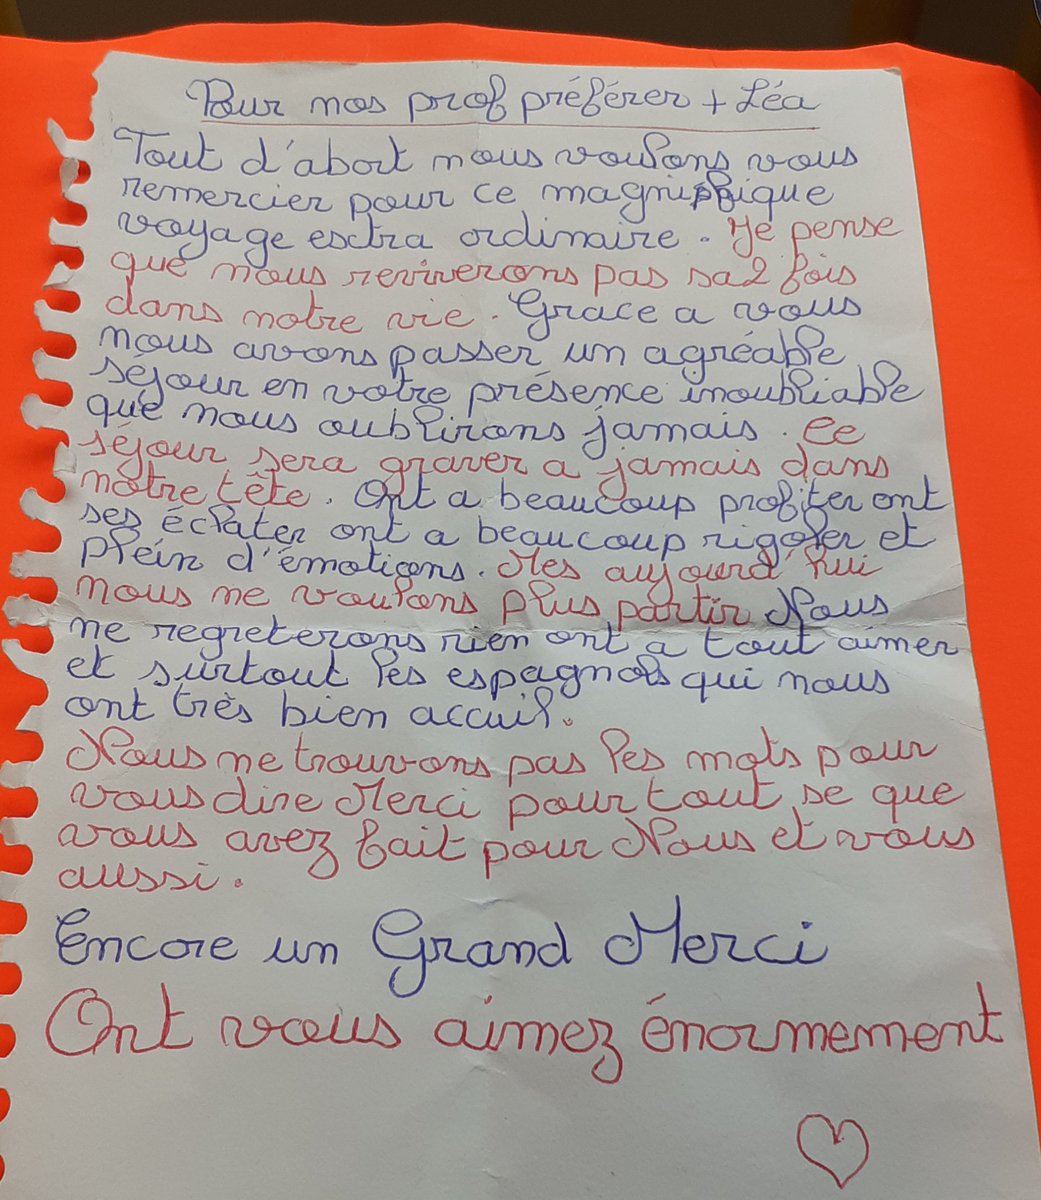 Pour nos prof préférer + Léa
Tout d'abort nous voulons vous
remercier pour ce magniffique
voyage esctra ordinaire. Je pense
que nous reviverons pas sa 2 fois
dans notre vie. Grace a vous
nous avons passer un agréable
séjour en votre présence inoubliable
que nous oublirons jamais. Ce
séjour sera graver a jamais dans
notre tête. Ont a beaucoup profiter ont
ses éclater ont a beaucoup rigoler et
plein d'émotions. Mes aujourd'hui
nous ne voulons plus partir Nous
ne regreterons rien ont a tout aimer
et surtout les espagnols qui nous
ont très bien accuil.
Nous ne trouvons pas les mots pour
vous dire Merci pour tout se que
vous avez fait pour Nous et vous
aussi.
Encore un Grand Merci
Ont vous aimez énormement